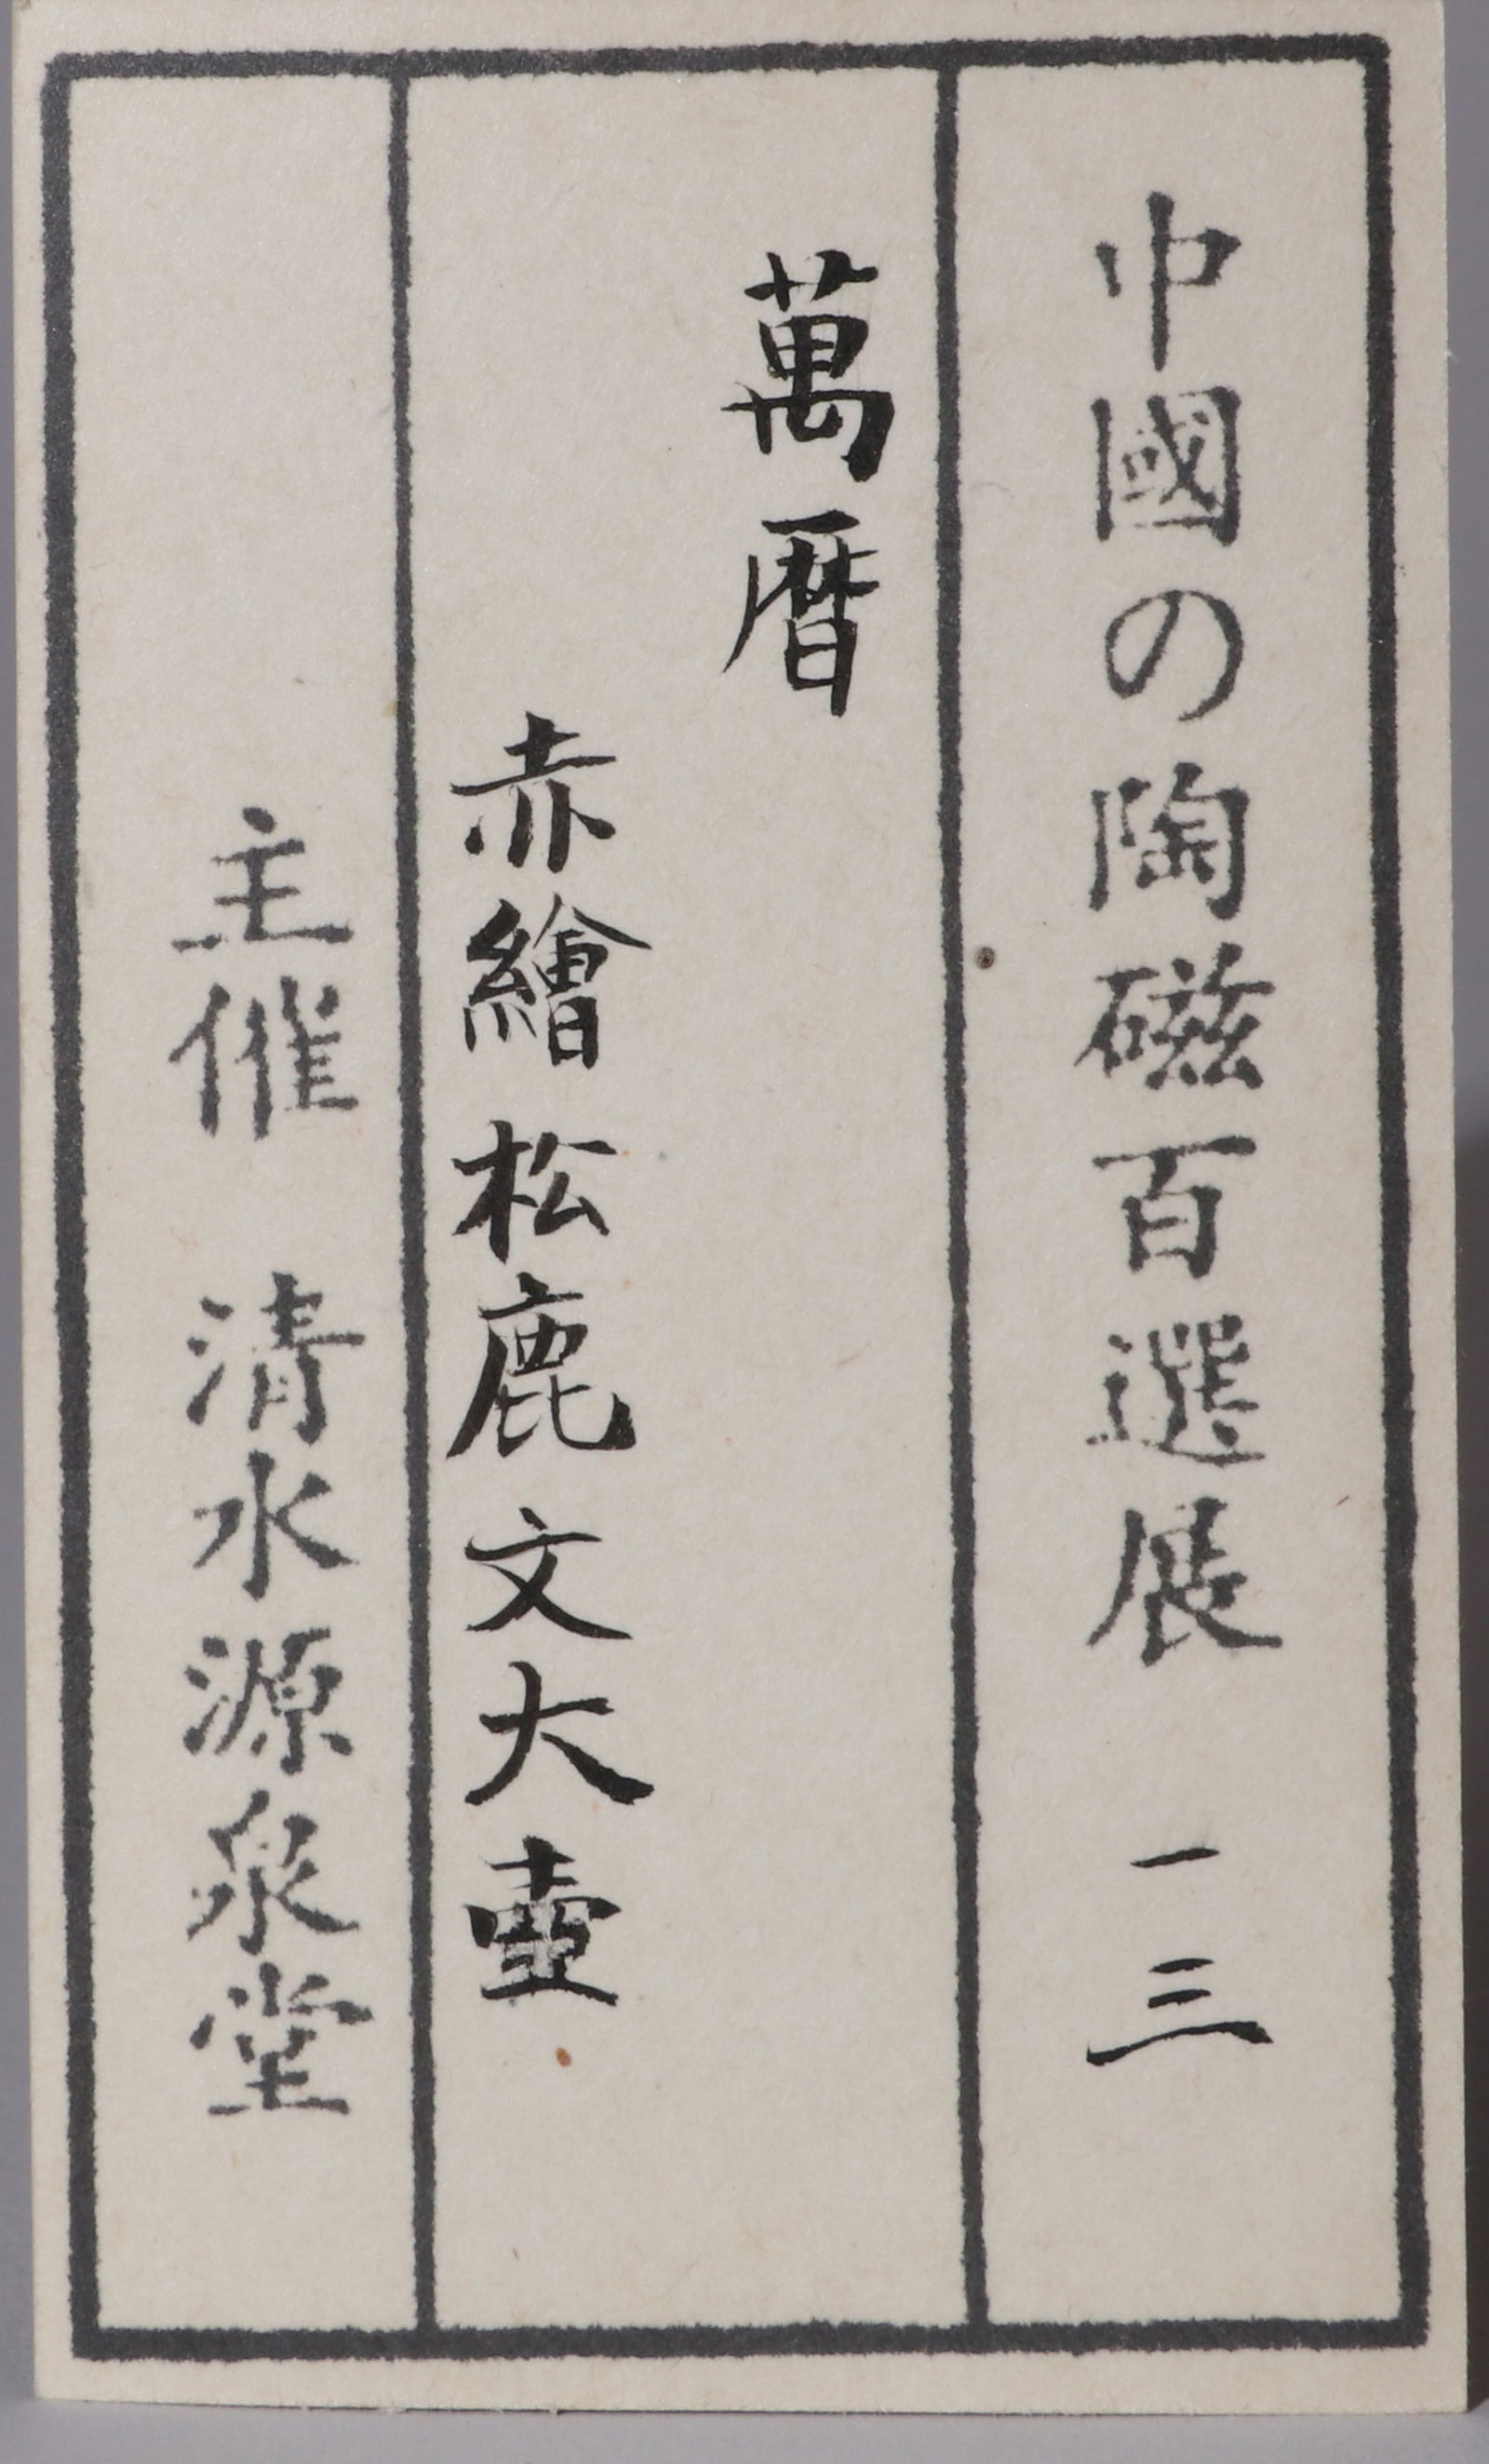 中國の陶磁百選展 一三
萬暦
赤繪松鹿文大壷
主催 清水源泉堂